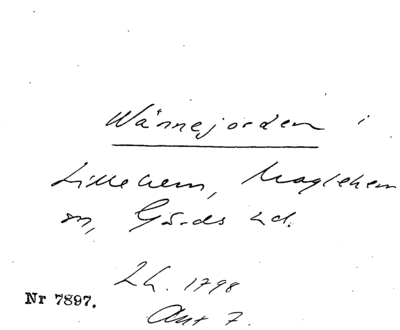 Wännejorden i
Lillehem, Maglehem
sn, Gärds hd.
Lh. 1798
Nr 7897.
Akt 7.